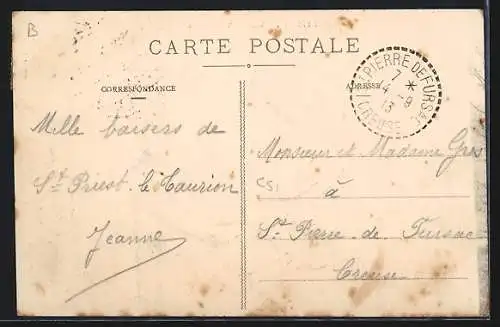 B
CARTE POSTALE
CORRESPONDANCE
ADRESSE
St PIERRE DE FURSAC
7 *
4 - 9
13
CREUSE
Mille baisers de
St Priest le Taurion
Jeanne
Monsieur et Madame Gros
CS1
à
St Pierre de Fursac
Creuse